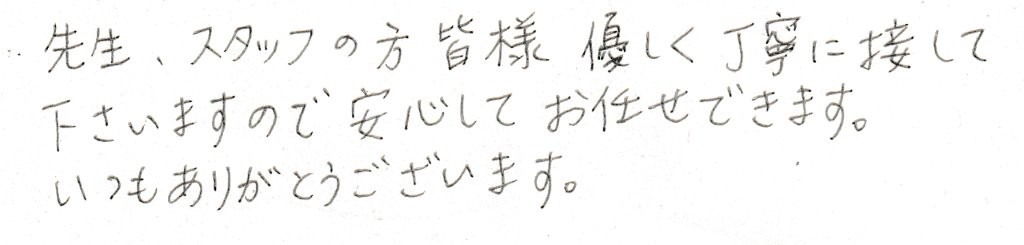 先生、スタッフの方 皆様 優しく 丁寧に接して
下さいますので 安心して お任せできます。
いつもありがとうございます。